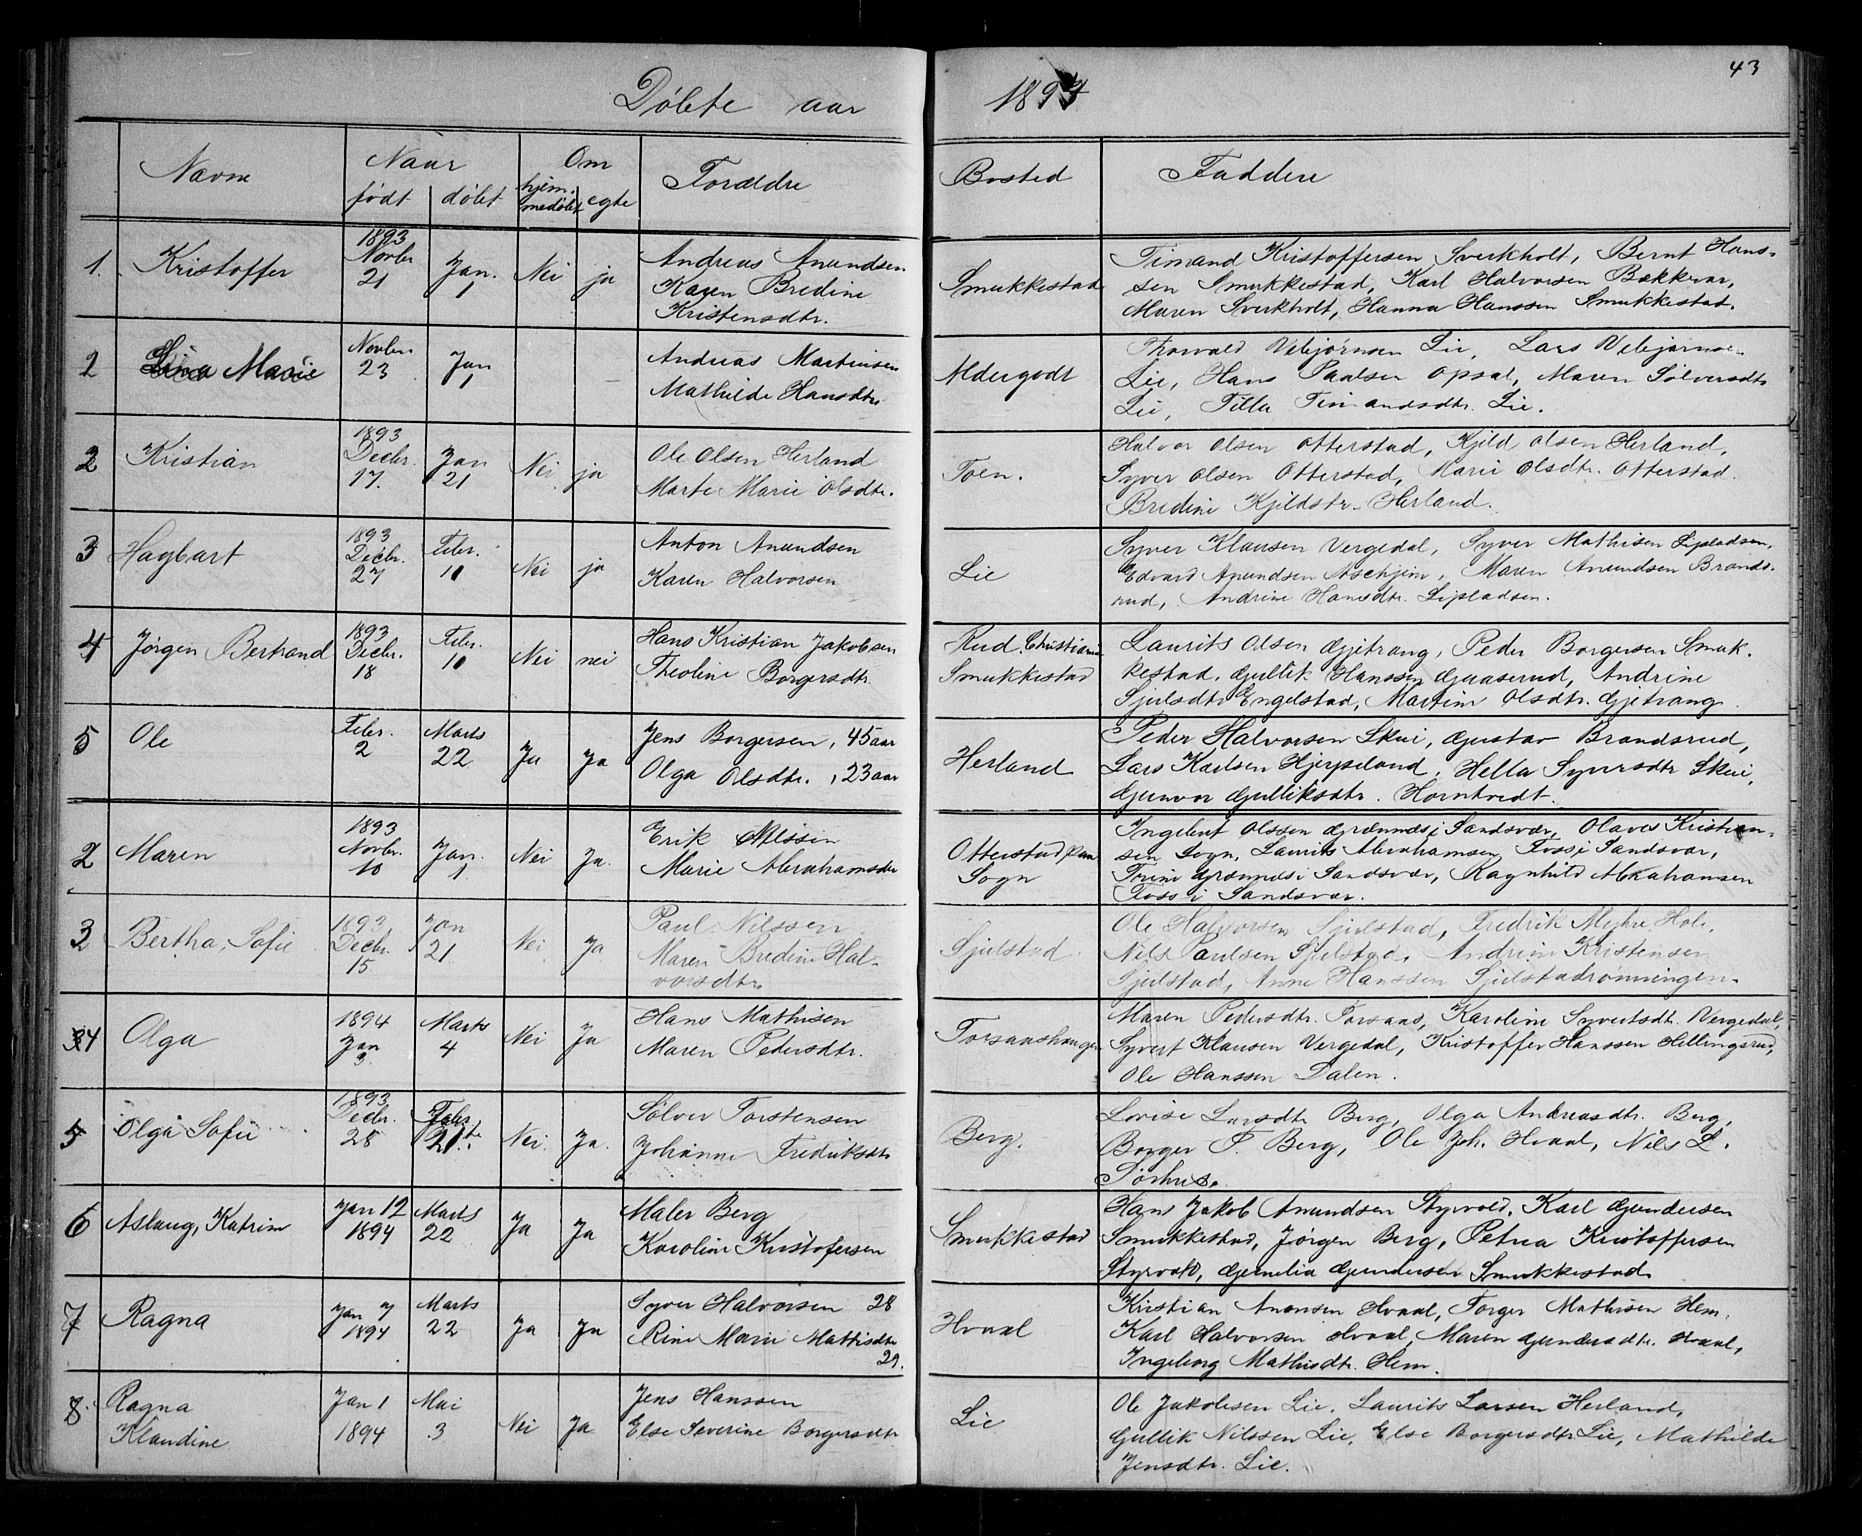 43
Døbte aar 1894
Navn
Naar
født
døbt
Om
hjem-
medøbt
egte
Forældre
Bosted
Faddere
1. Kristoffer 1893 Novbr. 21 Jan. 1 Nei ja Andreas Anundsen
Karen Bredine
Kristensdtr.
Smukkestad
Timand Kristoffersen Sverkholt, Bernt Hans-
sen Smukkestad, Karl Halvorsen Bakkerør,
Maren Sverkholt, Hanna Hanssen Smukkestad.
2 Marie Novbr. 23 Jan 1 Andreas Martinsen
Mathilde Hansdtr.
Aldergodt
Thorvald Vebjørnsen Lie, Lars Vebjørnsen
Lie, Hans Paalsen Opsal, Maren Sølversdtr.
Lie, Tilla Timandsdtr. Lie.
2 Kristian 1893 Decbr. 17. Jan 21 Nei ja Ole Olsen Herland
Marte Marie Olsdtr.
Toen.
Halvor Olsen Otterstad, Kjeld Olsen Herland,
Syver Olsen Otterstad, Marie Olsdtr. Otterstad
Bredine Kjeldstr. Herland.
3 Hagbart 1893 Decbr. 27 Febr. 11 Nei ja Anton Anundsen
Karen Halvorsen
Lie
Syver Klausen Vergedal, Syver Mathisen Sipladsen,
Edvard Anundsen Aschjem, Maren Anundsen Brands-
rud, Andrine Hansdtr. Sipladsen.
4 Jørgen Bertrand 1893 Decbr. 18 Febr. 11 Nei nei Hans Kristian Jakobsen
Theoline Borgersdtr.
Rud. Christians
Smukkestad
Laurits Olsen Gjetrang, Peder Borgersen Smuk-
kestad, Gullik Hanssen Gaaserud, Andrine
Sjulsdtr. Engelstad, Martine Olsdtr. Gjetrang.
5 Ole Febr. 2 Marts 22 Ja Ja Jens Borgersen, 45 aar
Olga Olsdtr., 23 aar
Herland
Peder Halvorsen Skui, Gustav Brandsrud,
Lars Karlsen Hjerpeland, Hella Syversdtr. Skui,
Gunvor Gulliksdtr. Horntvedt.
2 Maren 1893 Novbr. 10 Jan. 1 Nei Ja. Erik Nilssen
Marie Abrahamsdtr
Otterstad paa
Sogn
Ingebret Olssen Grønnæs i Sandsvær, Olaves Kristian-
sen Sogn, Laurits Abrahamsen Foss i Sandsvær,
Trine Grønnæs i Sandsvær, Ragnhild Abrahamsen
Foss i Sandsvær.
3 Bertha, Sofie 1893 Decbr. 15 Jan 21 Nei Ja Paul Nilssen
Maren Bredine Hal-
vorsdtr.
Sjulstad.
Ole Halvorsen Sjulstad, Fredrik Myhre, Hole,
Nils Paulsen Sjulstad, Andrine Kristensen
Sjulstad, Anne Hanssen Sjulstadrønningen.
4 Olga 1894 Jan 3 Marts 4 Nei Ja Hans Mathisen
Maren Pedersdtr.
Forsanshaugen
Maren Pedersdtr. Forsans, Karoline Syvertsdtr. Vergedal,
Syvert Klausen Vergedal, Kristoffer Hanssen Hellingsrud,
Ole Hanssen Dalen.
5 Olga Sofie 1893 Decbr. 28 Febr. 21 Nei Ja. Sølver Torstensen
Johanne Fredriksdtr
Berg.
Lovise Larsdtr. Berg, Olga Andreasdtr. Berg,
Borger T. Berg, Ole Joh. Hvaal, Nils L.
Sørhus.
6 Aslaug, Katrine Jan 12 1894 Marts 22 Ja Ja Maler Berg
Karoline Kristofersen
Smukkestad
Hans Jakob Anundsen Styrvold, Karl Gundersen
Smukkestad, Jørgen Berg, Petrea Kristoffersen
Styrvold, Gunelia Gundersen Smukkestad
7 Ragna Jan 7 1894 Marts 22 Ja Ja Syver Halvorsen 28
Rine Marie Mathisdtr
29.
Hvaal
Kristian Anonsen Hvaal, Torger Mathisen Hem,
Karl Halvorsen Hvaal, Maren Gundersdtr. Hvaal,
Ingeborg Mathisdtr. Hem.
8. Ragna
Klaudine Jan 1 1894 Mai 3 Nei Ja Jens Hanssen
Else Severine Borgersdtr
Lie
Ole Jakobsen Lie, Laurits Larsen Herland,
Gullik Nilssen Lie, Else Borgersdtr. Lie, Mathilde
Jensdtr. Lie.